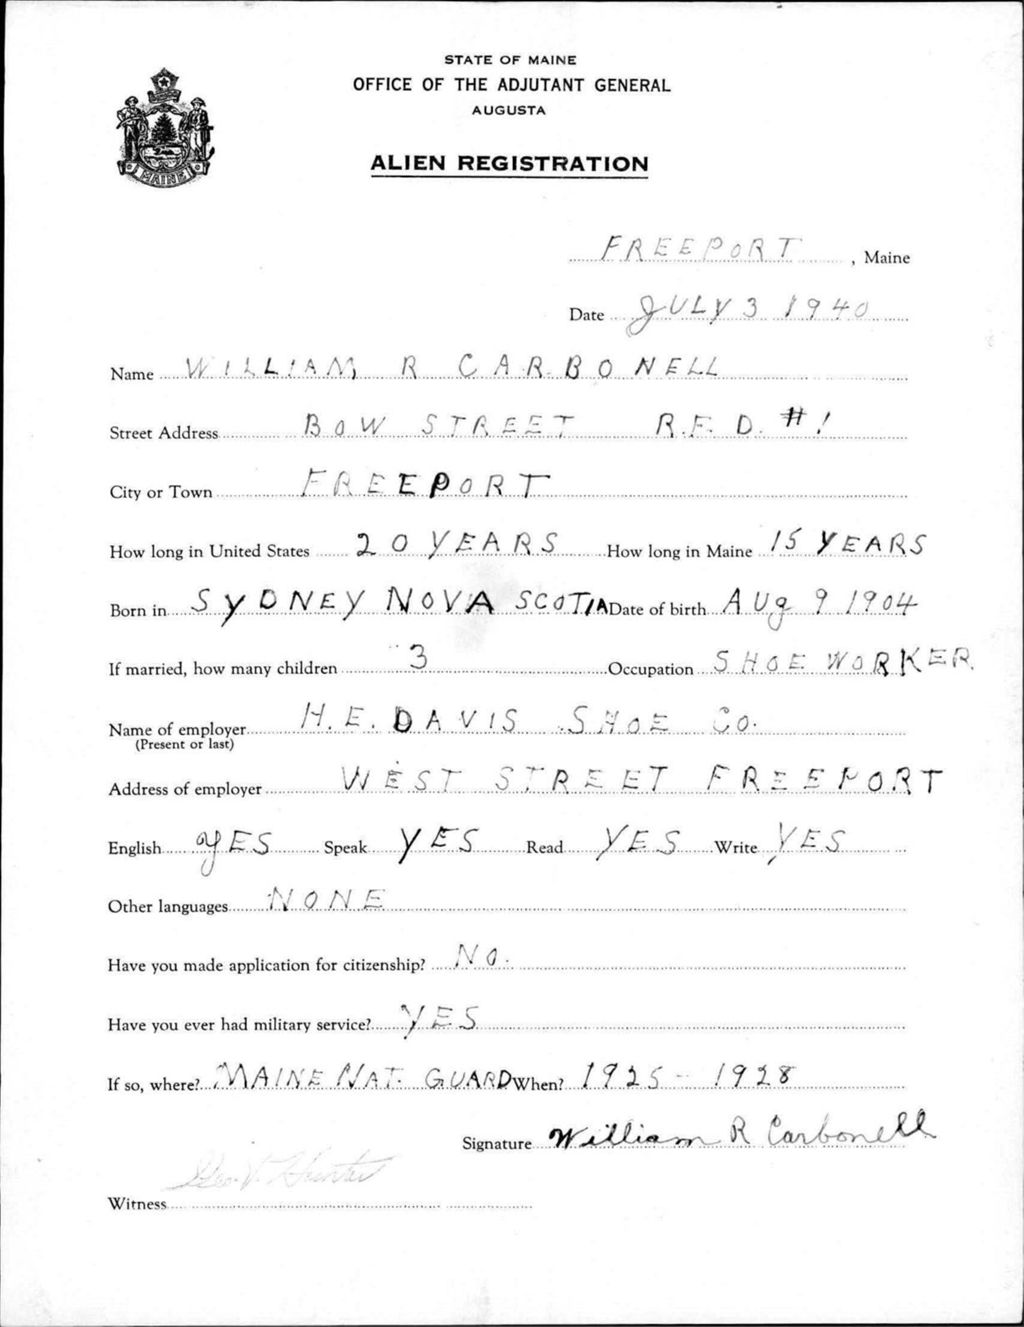 STATE OF MAINE
OFFICE OF THE ADJUTANT GENERAL
AUGUSTA
ALIEN REGISTRATION
MAINE
FREEPORT, Maine
Date JULY 3 1940
Name WILLIAM R CARBONELL
Street Address BOW STREET R.F.D. #1
City or Town FREEPORT
How long in United States 20 YEARS How long in Maine 15 YEARS
Born in SYDNEY NOVA SCOTIA Date of birth AUg 9 1904
If married, how many children 3 Occupation SHOE WORKER.
Name of employer H.E. DAVIS SHOE Co.
(Present or last)
Address of employer WEST STREET FREEPORT
English YES Speak YES Read YES Write YES
Other languages NONE
Have you made application for citizenship? No.
Have you ever had military service? YES
If so, where? MAINE NAT. GUARD When? 1925 - 1928
Signature William R Carbonell
Witness Geo. V. Hunter